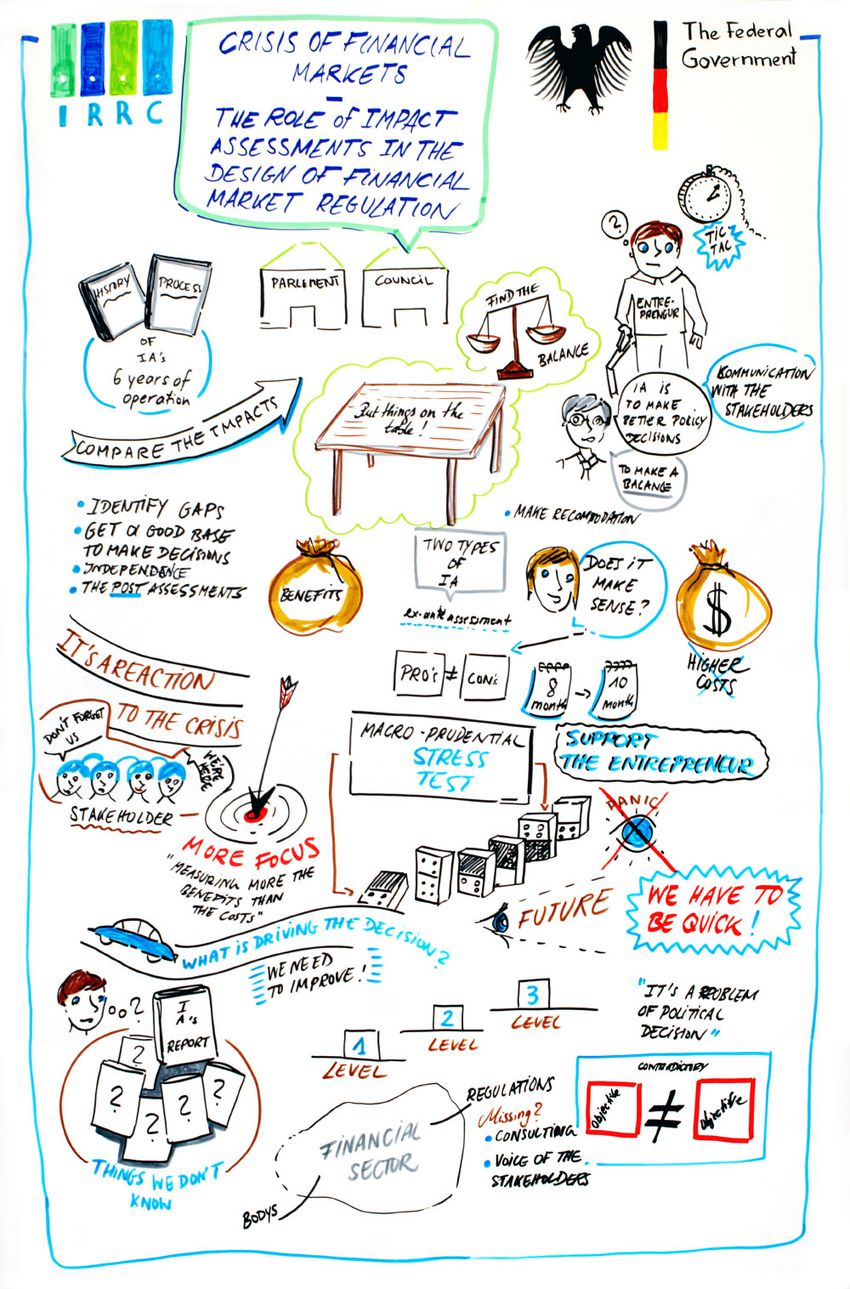 IRRC
CRISIS OF FINANCIAL
MARKETS
-
THE ROLE of IMPACT
ASSESSMENTS IN THE
DESIGN OF FINANCIAL
MARKET REGULATION
The Federal
Government
?
TIC
TAC
ENTRE-
PRENEUR
HISTORY
PROCESS
OF
IA's
6 years of
operation
PARLEMENT
COUNCIL
FIND THE
BALANCE
COMPARE THE IMPACTS
But things on the
table!
IA IS
TO MAKE
BETTER POLICY
DECISIONS
KOMMUNICATION
WITH THE
STAKEHOLDERS
TO MAKE A
BALANCE
• MAKE RECOMODATION
• IDENTIFY GAPS
• GET a GOOD BASE
TO MAKE DECISIONS
• INDEPENDENCE
• THE POST ASSESSMENTS
BENEFITS
TWO TYPES
OF
IA
ex-ante assessment
DOES IT
MAKE
SENSE?
$
HIGHER
COSTS
PRO's ≠ CON's
8
month
→
10
month
IT'S A REACTION
TO THE CRISIS
DON'T FORGET
US
WE'RE
HERE
STAKEHOLDER
MORE FOCUS
"MEASURING MORE THE
BENEFITS THAN
THE COSTS"
MACRO-PRUDENTIAL
STRESS
TEST
SUPPORT
THE ENTREPRENEUR
PANIC
FUTURE
WE HAVE TO
BE QUICK!
WHAT IS DRIVING THE DECISION?
WE NEED
TO IMPROVE!
?
I
A's
REPORT
?
?
?
?
?
THINGS WE DON'T
KNOW
1
LEVEL
2
LEVEL
3
LEVEL
"IT'S A PROBLEM
OF POLITICAL
DECISION"
CONTRADICTORY
Objective
≠
Objective
FINANCIAL
SECTOR
BODYS
REGULATIONS
Missing?
• CONSULTING
• VOICE OF THE
STAKEHOLDERS